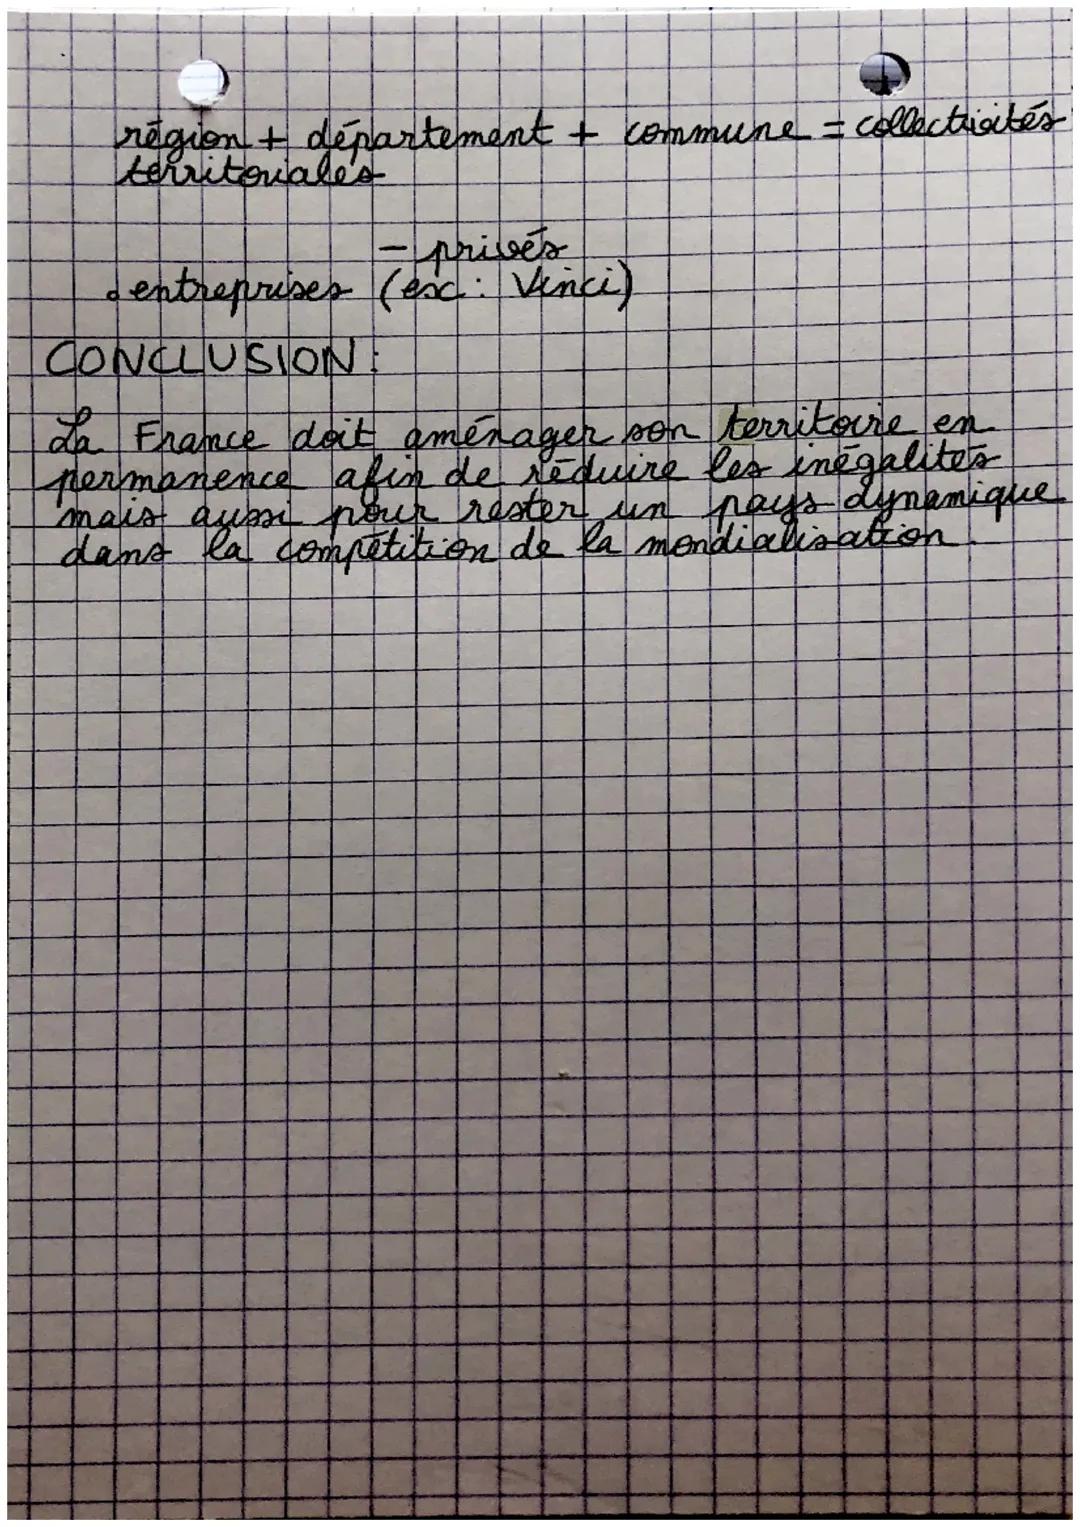 région + département + commune = collectivités
territoriales
- privés
• entreprises (ex : Vinci)
CONCLUSION :
La France doit aménager son territoire en
permanence afin de réduire les inégalités
mais aussi pour rester un pays dynamique
dans la compétition de la mondialisation.